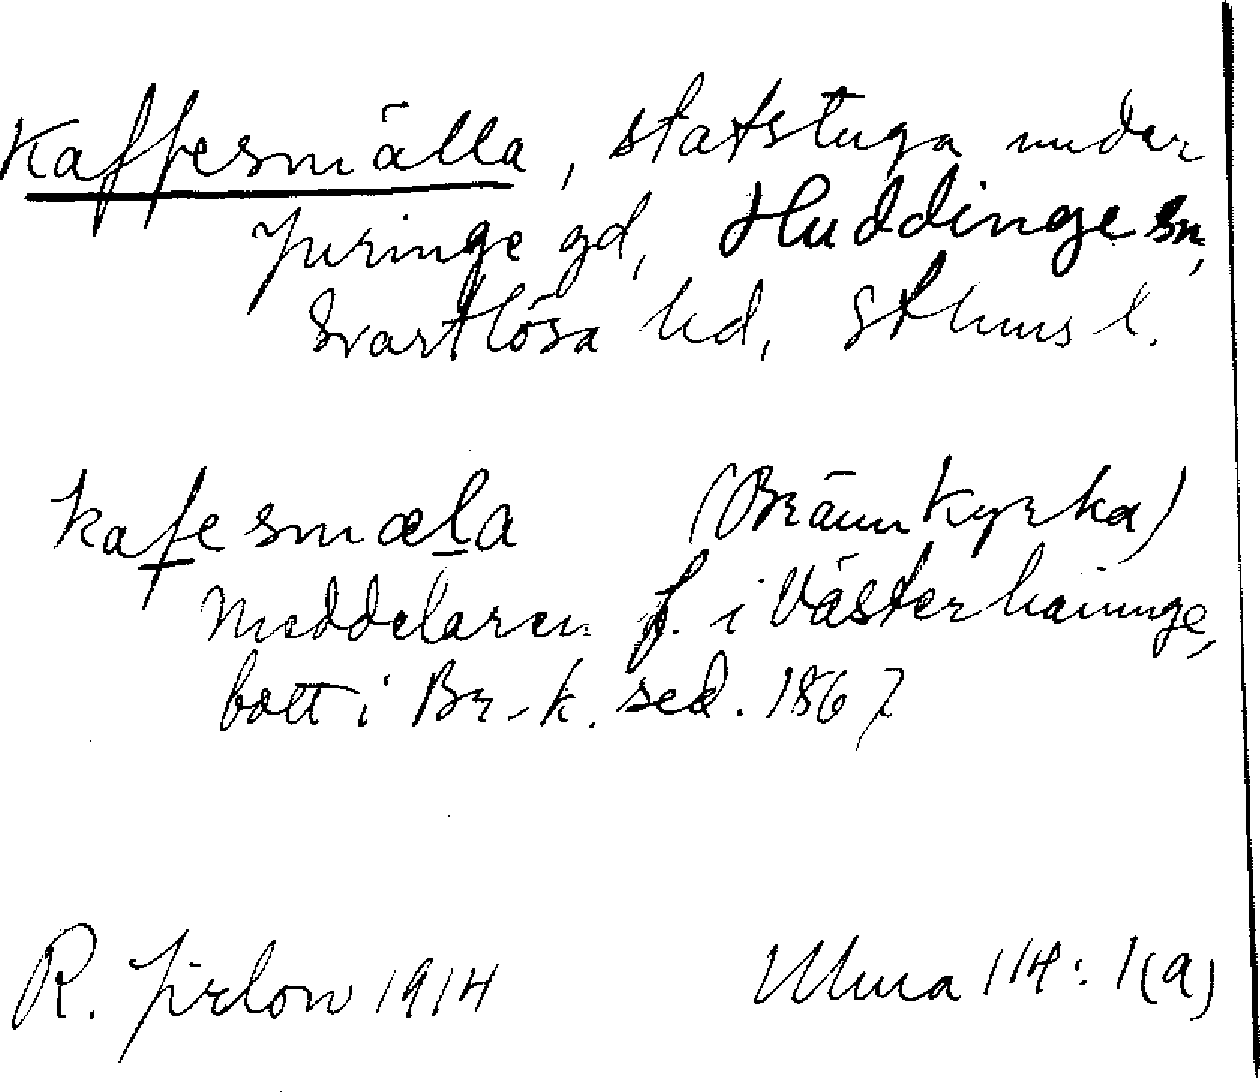 Kaffesmälla, statstuga under
Juringe gd, Huddinge sn,
Svartlösa hd, Sthms l.
kafesmæla (Brännkyrka)
Meddelaren f. i Västerhaninge,
bott i Br-k. sed. 1867
R. Jirlow 1914 Ulma 114: 1(a)